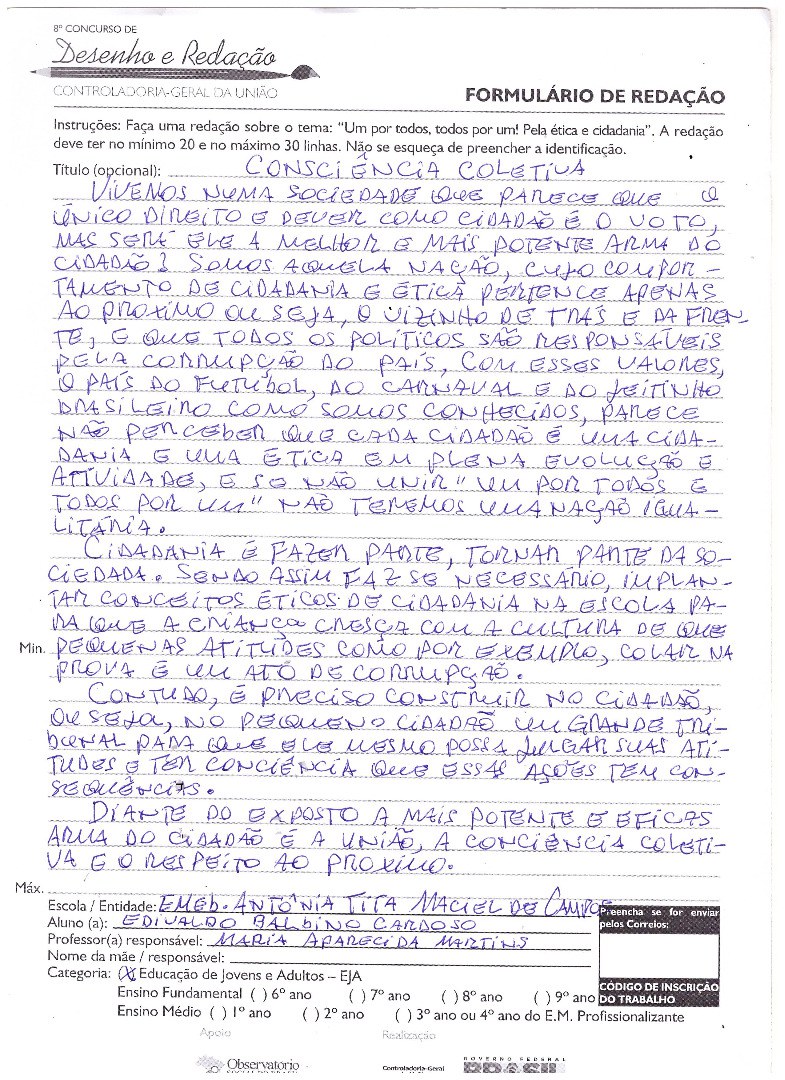 8º CONCURSO DE
Desenho e Redação
CONTROLADORIA-GERAL DA UNIÃO
FORMULÁRIO DE REDAÇÃO
Instruções: Faça uma redação sobre o tema: "Um por todos, todos por um! Pela ética e cidadania". A redação
deve ter no mínimo 20 e no máximo 30 linhas. Não se esqueça de preencher a identificação.
Título (opcional): CONSCIÊNCIA COLETIVA
VIVEMOS NUMA SOCIEDADE QUE PARECE QUE O
ÚNICO DIREITO E DEVER COMO CIDADÃO É O VOTO,
MAS SERÁ ELE A MELHOR E MAIS POTENTE ARMA DO
CIDADÃO? SOMOS AQUELA NAÇÃO, CUJO COMPOR-
TAMENTO DE CIDADANIA E ÉTICA PERTENCE APENAS
AO PROXIMO OU SEJA, O VIZINHO DE TRÁS E DA FREN-
TE, E QUE TODOS OS POLÍTICOS SÃO RESPONSÁVEIS
PELA CORRUPÇÃO DO PAÍS, COM ESSES VALORES,
O PAÍS DO FUTEBOL, DO CARNAVAL E DO JEITINHO
BRASILEIRO COMO SOMOS CONHECIDOS, PARECE
NÃO PERCEBER QUE CADA CIDADÃO É UMA CIDA-
DANIA E UMA ÉTICA EM PLENA EVOLUÇÃO E
ATIVIDADE, E SE NÃO UNIR "UM POR TODOS E
TODOS POR UM" NÃO TEREMOS UMA NAÇÃO IGUA-
LITÁRIA.
CIDADANIA É FAZER PARTE, TORNAR PARTE DA SO-
CIEDADA. SENDO ASSIM FAZ SE NECESSÁRIO, IMPLAN-
TAR CONCEITOS ÉTICOS DE CIDADANIA NA ESCOLA PA-
RA QUE A CRIANÇA CRESÇA COM A CULTURA DE QUE
Min. PEQUENAS ATITUDES COMO POR EXEMPLO, COLAR NA
PROVA É UM ATO DE CORRUPÇÃO.
CONTUDO, É PRECISO CONSTRUIR NO CIDADÃO,
OU SEJA, NO PEQUENO CIDADÃO UM GRANDE TRI-
BUNAL PARA QUE ELE MESMO POSSA JULGAR SUAS ATI-
TUDES E TER CONCIÊNCIA QUE ESSAS AÇÕES TEM CON-
SEQUÊNCIAS.
DIANTE DO EXPOSTO A MAIS POTENTE E EFICAS
ARMA DO CIDADÃO É A UNIÃO, A CONCIÊNCIA COLETI-
VA E O RESPEITO AO PROXIMO.
Máx.
Escola / Entidade: EMEB. ANTÔNIA TITA MACIEL DE CAMPOS
Aluno (a): EDIVALDO BALBINO CARDOSO
Professor(a) responsável: MARIA APARECIDA MARTINS
Nome da mãe / responsável:
Preencha se for enviar
pelos Correios:
CÓDIGO DE INSCRIÇÃO
DO TRABALHO
Categoria: (X) Educação de Jovens e Adultos – EJA
Ensino Fundamental ( ) 6º ano ( ) 7º ano ( ) 8º ano ( ) 9º ano
Ensino Médio ( ) 1º ano ( ) 2º ano ( ) 3º ano ou 4º ano do E.M. Profissionalizante
Apoio Realização
Observatorio
Controladoria-Geral
GOVERNO FEDERAL
BRASIL